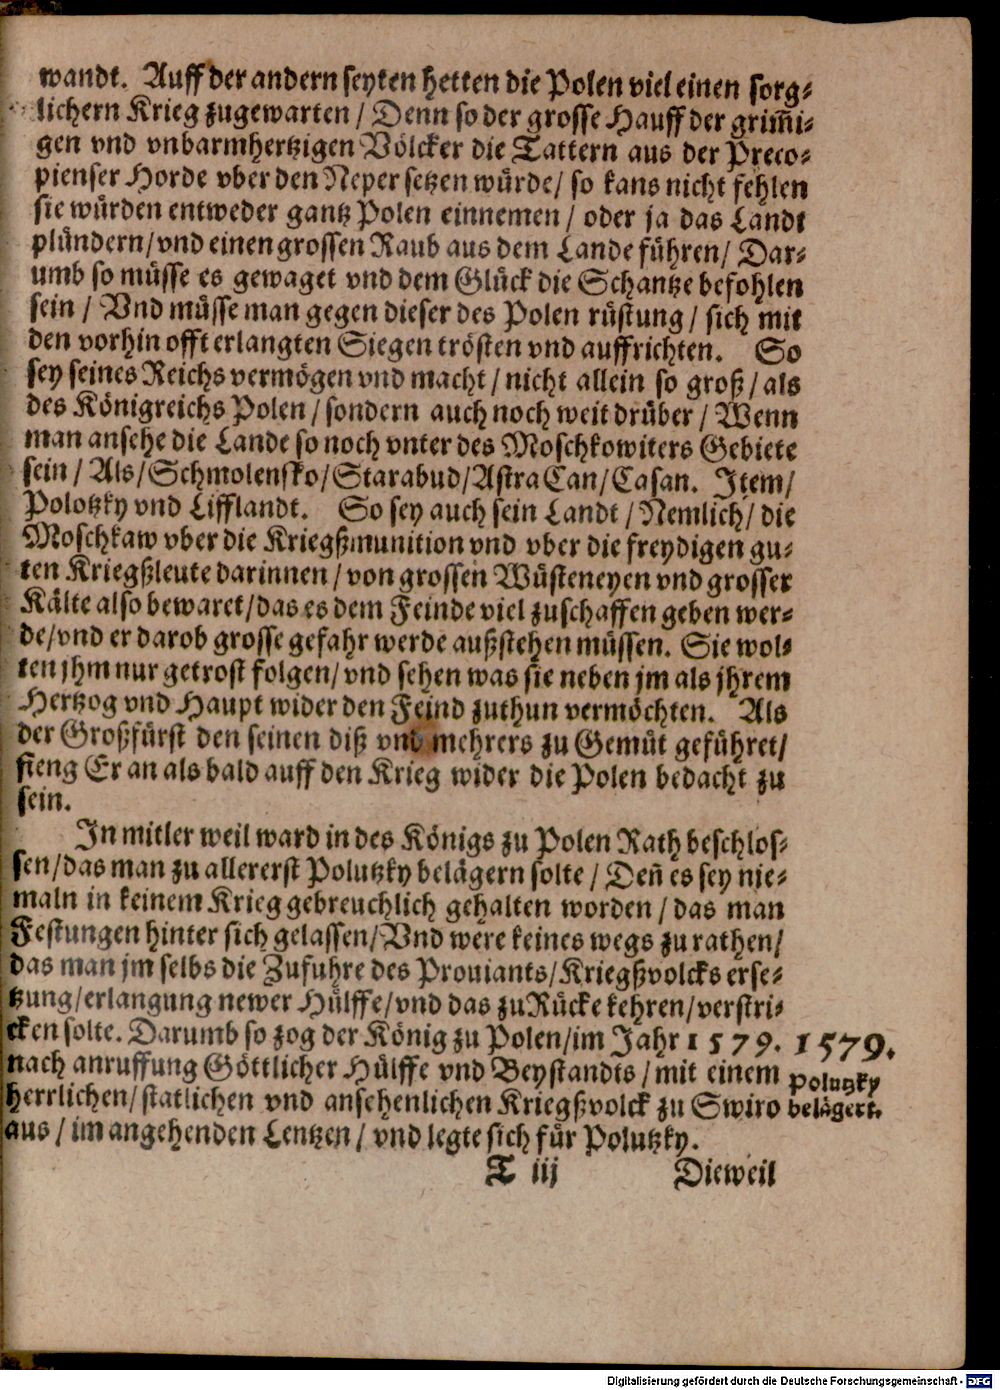 wandt. Auff der andern seyten hetten die Polen viel einen sorg-
lichern Krieg zugewarten / Denn so der grosse Hauff der grim̃i-
gen vnd vnbarmhertzigen Völcker die Tattern aus der Preco-
pienser Horde vber den Neper setzen würde / so kans nicht fehlen
sie würden entweder gantz Polen einnemen / oder ja das Landt
plündern / vnd einen grossen Raub aus dem Lande führen / Dar-
umb so müsse es gewaget vnd dem Glück die Schantze befohlen
sein / Vnd müsse man gegen dieser des Polen rüstung / sich mit
den vorhin offt erlangten Siegen trösten vnd auffrichten. So
sey seines Reichs vermögen vnd macht / nicht allein so groß / als
des Königreichs Polen / sondern auch noch weit drüber / Wenn
man ansehe die Lande so noch vnter des Moschkowiters Gebiete
sein / Als / Schmolensko / Starabud / AstraCan / Casan. Item /
Polotzky vnd Lifflandt. So sey auch sein Landt / Nemlich / die
Moschkaw vber die Kriegßmunition vnd vber die freydigen gu-
ten Kriegßleute darinnen / von grossen Wüsteneyen vnd grosser
Kälte also bewaret / das es dem Feinde viel zuschaffen geben wer-
de / vnd er darob grosse gefahr werde außstehen müssen. Sie wol-
ten jhm nur getrost folgen / vnd sehen was sie neben jm als jhrem
Hertzog vnd Haupt wider den Feind zuthun vermöchten. Als
der Großfürst den seinen diß vnd mehrers zu Gemüt geführet /
fieng Er an als bald auff den Krieg wider die Polen bedacht zu
sein.
In mitler weil ward in des Königs zu Polen Rath beschlos-
sen / das man zu allererst Polutzky belägern solte / Deñ es sey nie-
maln in keinem Krieg gebreuchlich gehalten worden / das man
Festungen hinter sich gelassen / Vnd were keines wegs zu rathen /
das man jm selbs die Zufuhre des Prouiants / Kriegßvolcks erse-
tzung / erlangung newer Hülffe / vnd das zu Rücke kehren / verstri-
cken solte. Darumb so zog der König zu Polen / im Jahr 1579.
nach anruffung Göttlicher Hülffe vnd Beystandts / mit einem
herrlichen / statlichen vnd ansehenlichen Kriegßvolck zu Swiro
aus / im angehenden Lentzen / vnd legte sich für Polutzky.
1579.
Polutzky
belägert.
T iij Dieweil
Digitalisierung gefördert durch die Deutsche Forschungsgemeinschaft - DFG